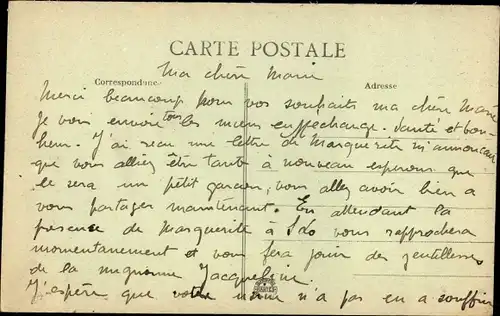 CARTE POSTALE
Correspondance
Adresse
Ma chère Marie
Merci beaucoup pour vos souhaits ma chère Marie
Je vous envoie tous les miens en échange. Santé et bon-
heur. J'ai reçu une lettre de Marguerite m'annonçant
que vous alliez être tante à nouveau espérons que
ce sera un petit garçon, vous allez avoir bien à
vous partager maintenant. En attendant la
présence de Marguerite à St Lo vous rapprochera
momentanement et vous fera jouir des gentillesses
de la mignonne Jacqueline.
J'espère que votre n'a pas eu a souffrir